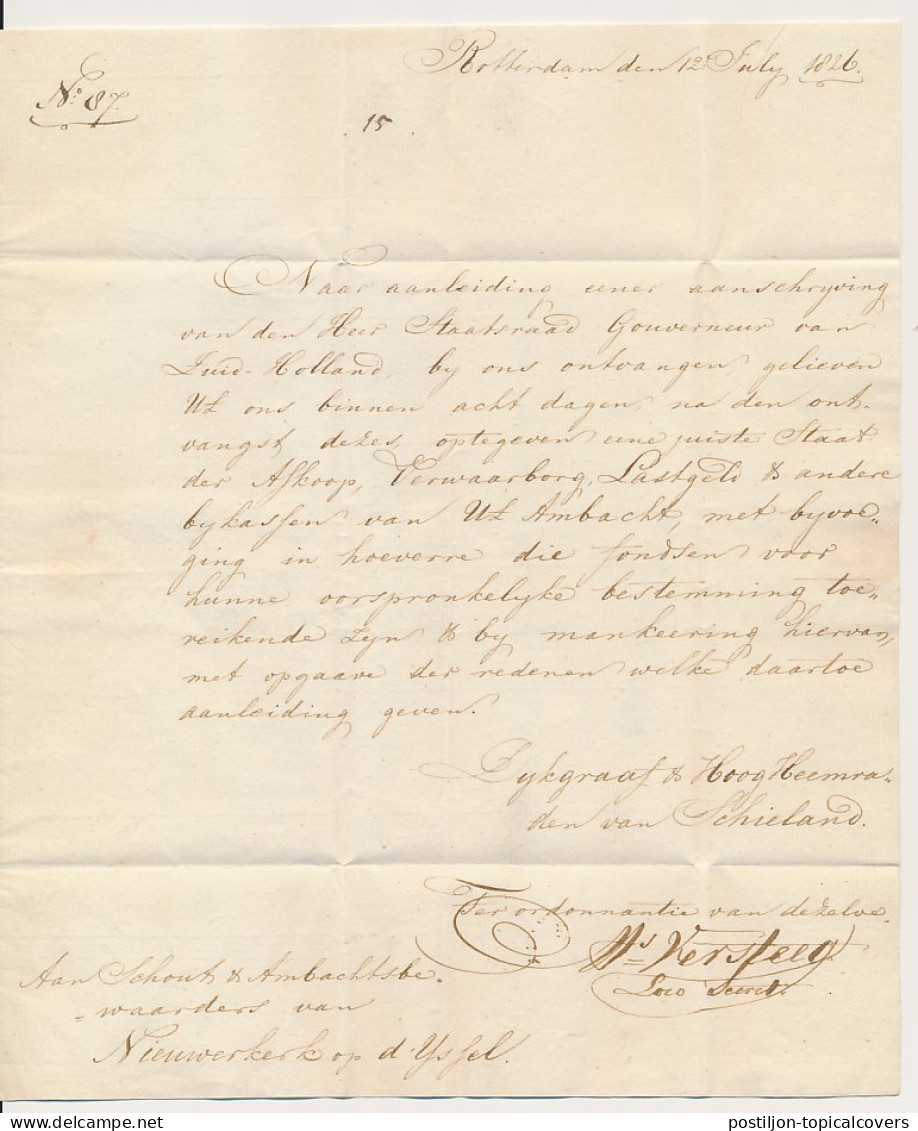 Rotterdam den 12e July 1826.
No. 87.
15.
Naar aanleiding eener aanschryving
van den Heer Staatsraad Gouverneur van
Zuid-Holland, by ons ontvangen, gelieven
UE ons binnen acht dagen, na den ont-
vangst dezes, optegeven eene juiste Staat
der Afkoop, Verwaarborg, Lastgeld & andere
bykassen van UE Ambacht, met byvoe-
ging in hoeverre die fondsen voor
hunne oorspronkelyke bestemming toe-
reikende zyn & by mankeering hiervan,
met opgaave der redenen welke daartoe
aanleiding geven.
Dykgraaf & HoogHeemra-
den van Schieland.
Ter ordonnantie van dezelve.
Versteeg.
Loco Secrets.
Aan Schout & Ambachtsbe-
waarders van
Nieuwerkerk op d'Yssel.
postiljon-topicalcovers